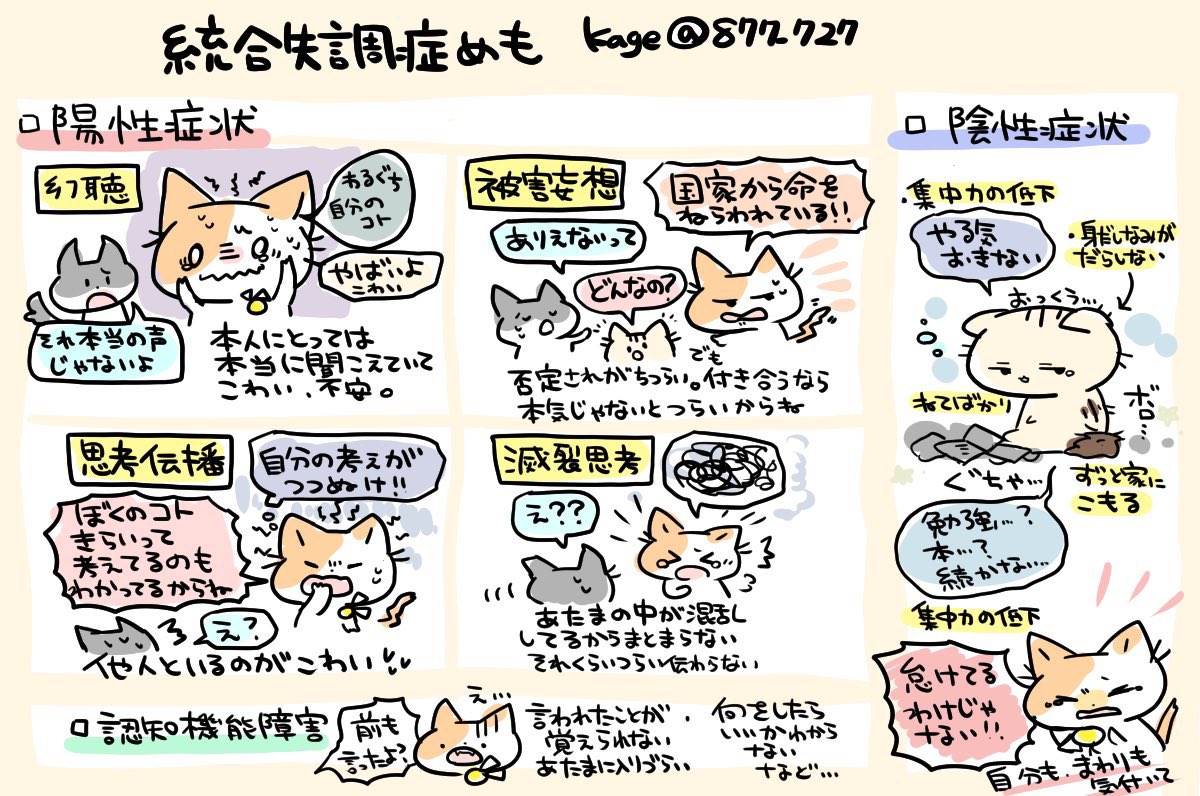 統合失調症めも kage@877_727
□陽性症状
幻聴
わるぐち
自分の
コト
やばいよ
こわい
それ本当の声
じゃないよ
本人にとっては
本当に聞こえていて
こわい、不安。
被害妄想
国家から命を
ねらわれている!!
ありえないって
どんなの?
でも
否定されがちつらい。付き合うなら
本気じゃないとつらいからね
思考伝播
自分の考えが
つつぬけ!!
ぼくのコト
きらいって
考えてるのも
わかってるからね
え?
他人といるのがこわい
滅裂思考
え??
あたまの中が混乱し
してるからまとまらない
それくらいつらい伝わらない
□認知機能障害
前も
言ったよ?
え…
言われたことが
覚えられない
あたまに入りづらい
・何をしたら
いいかわから
ない
など…
□陰性症状
・集中力の低下
やる気
おきない
・身だしなみが
だらしない
おっくう…
ねてばかり
ボロ…
ぐちゃ…
ずっと家に
こもる
勉強…?
本…?
続かない…
集中力の低下
怠けてる
わけじゃ
ない!!
自分も、まわりも
気付いて